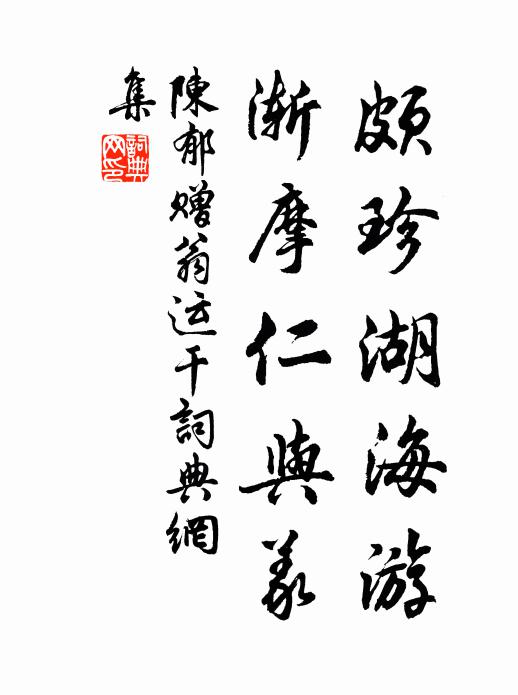 頗珍湖海游
漸摩仁與義
陳郁赠翁运干詞典網
集
詞典網印